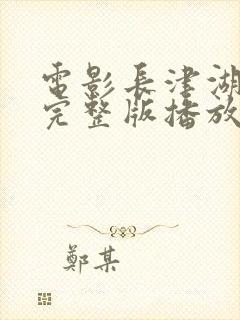 電影長津湖
完整版播放
鄭某